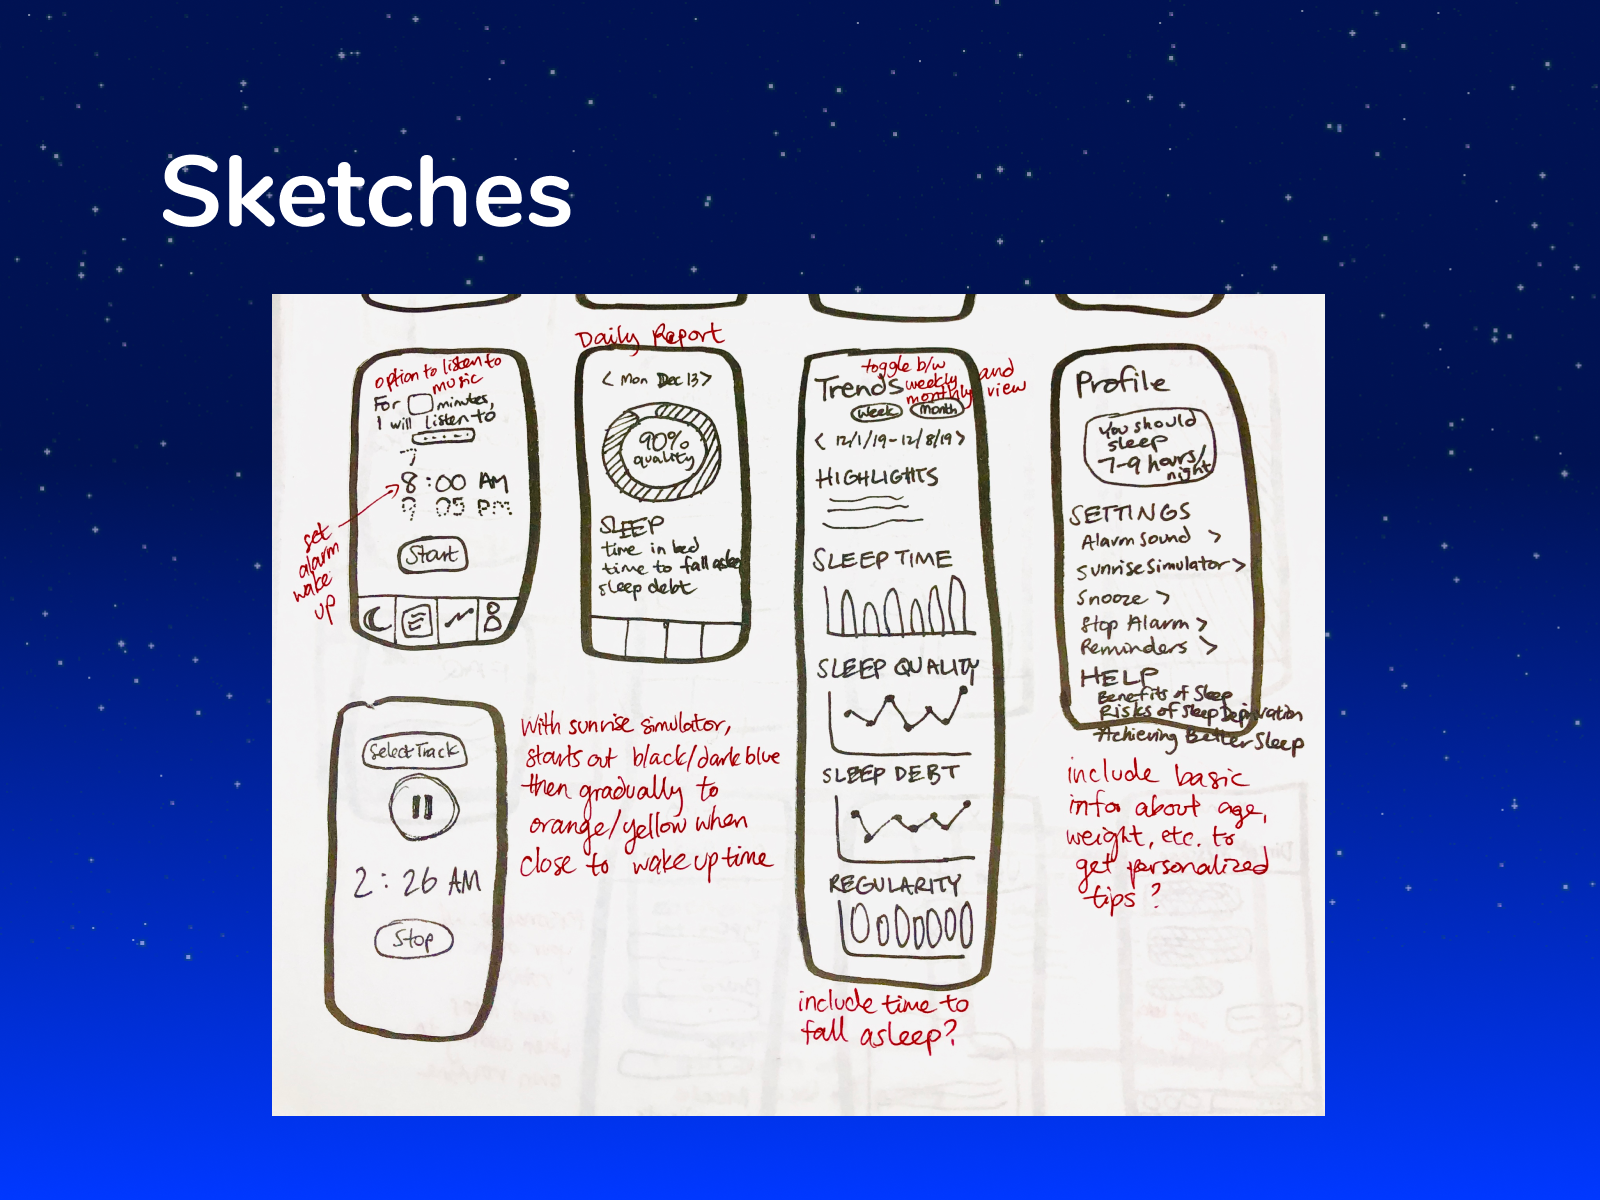 Sketches
option to listen to
music
For minutes,
I will listen to
7
8:00 AM
9 05 PM
Start
set
alarm
wake
up
Daily Report
< Mon Dec 13 >
90%
quality
SLEEP
time in bed
time to fall asleep
sleep debt
toggle b/w
weekly and
monthly view
Trends
Week Month
< 12/1/19-12/8/19 >
HIGHLIGHTS
SLEEP TIME
SLEEP QUALITY
SLEEP DEBT
REGULARITY
include time to
fall asleep?
Profile
You should
sleep
7-9 hours/
night
SETTINGS
Alarm Sound >
Sunrise Simulator >
Snooze >
Stop Alarm >
Reminders >
HELP
Benefits of Sleep
Risks of Sleep Deprivation
Achieving Better Sleep
include basic
info about age,
weight, etc. to
get personalized
tips?
Select Track
2:26 AM
Stop
With sunrise simulator,
starts out black/dark blue
then gradually to
orange/yellow when
close to wake up time